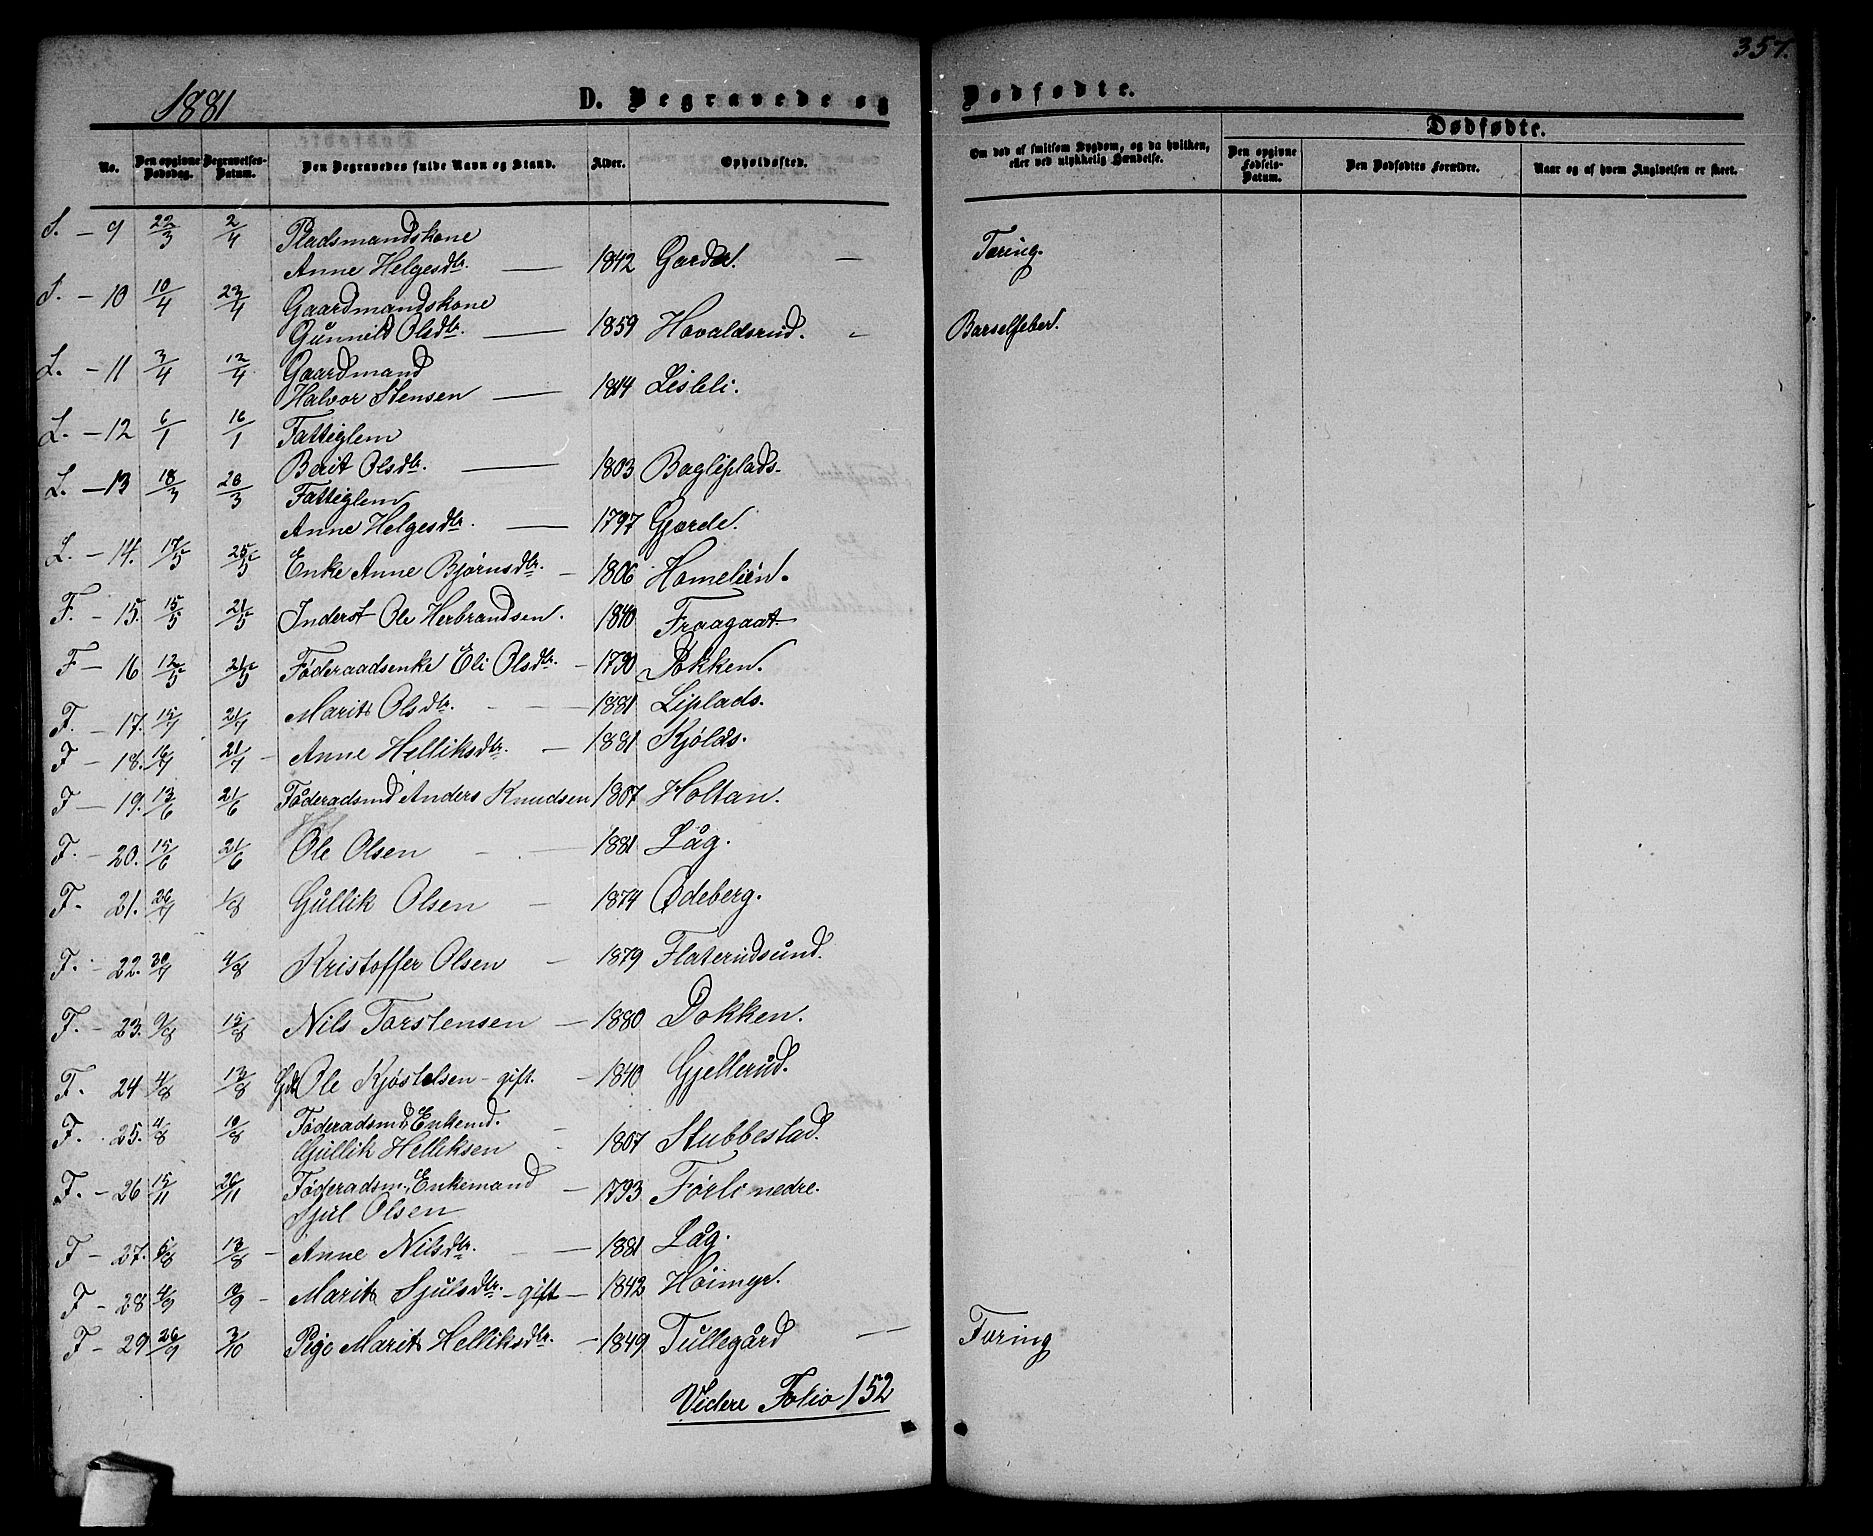 357.
1881 D. Begravede og Dødfødte.
No. Den opgivne Dødsdag. Begravelses-Datum. Den Begravedes fulde Navn og Stand. Alder. Opholdssted. Om død af smitsom Sygdom, og da hvilken, eller ved ulykkelig Hændelse. Dødfødte.
Den opgivne Fødsels-Datum. Den Dødfødtes Forældre. Naar og af hvem Angivelsen er skeet.
S. - 9 22/3 2/4 Pladsmandskone
Anne Helgesdtr. — 1842 — Tæring.
S. - 10 10/4 23/4 Gaardmandskone
Gunnild Olsdtr. — 1859 Havaldsrud. " Barselfeber.
L. - 11 3/4 12/4 Gaardmand
Halvor Stensen — 1814 Lisleli.
L. - 12 6/1 16/1 Fattiglem
Berit Olsdtr. — 1803 Bagliplads.
L. - 13 18/3 26/3 Fattiglem
Anne Helgesdtr. — 1797 Gjærde.
L. - 14. 17/5 25/5 Enke Anne Bjørnsdtr. — 1806 Homelien.
F. - 15. 15/5 21/5 Inderst Ole Herbrandsen. 1840 Fraagaat
F - 16 12/5 21/5 Føderaadsenke Eli Olsdtr. - 1790 Dokken.
F. - 17. 15/7 21/7 Marit Olsdtr. - — 1881 Liplads.
F - 18. 16/7 21/7 - Anne Helliksdtr. — 1881 Kjølds.
F - 19. 13/6 21/6 Føderadsmd Anders Knudsen 1807 Holtan.
F. - 20. 15/6 21/6 Ole Olsen - — 1881 Låg.
F. - 21. 26/7 1/8 Gullik Olsen — 1874 Ødeberg.
F. - 22. 30/7 4/8 Kristoffer Olsen — 1879 Flaterudsund.
F. - 23. 9/8 15/8 Nils Torstensen — 1880 Dokken.
F. - 24 4/8 13/8 Gdr Ole Kjøstelsen - gift. - 1840 Gjellerud.
F. - 25. 4/8 10/8 Føderadsmd Enkemd.
Gullik Helliksen - 1807 Stubbestad.
F. - 26 15/11 26/11 Føderadsm. Enkemand — 1793 Førli nedre.
Sjul Olsen
F - 27. 13/8 - Anne Nilsdtr. — 1881 Låg.
F - 28 4/9 10/9 - Marit Sjulsdtr. - gift - 1842 Höimyr.
F - 29 26/9 3/10 Pige Marit Helliksdtr. - 1849 Tullegård — Tæring
Videre Folio 152